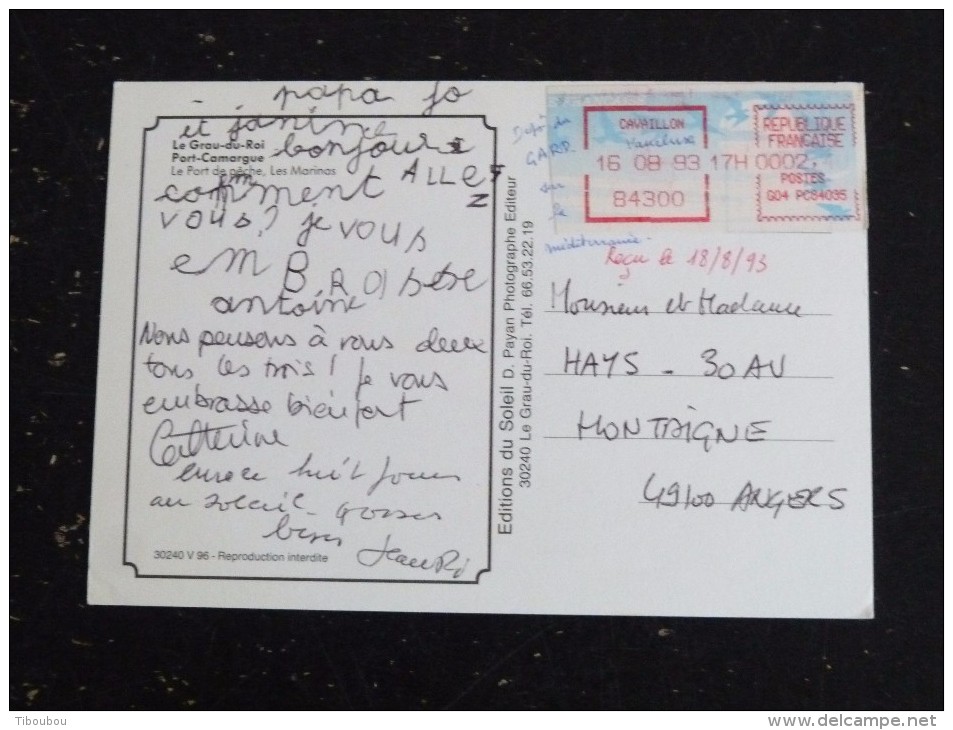 papa jo
et janine
Le Grau-du-Roi
Port-Camargue
Le Port de pêche, Les Marinas
bonjour
comment ALLEZ
vous? je vous
emBRAsse
antoine
Nous pensons à vous deux
tous les trois! Je vous
embrasse bien fort
Catherine
encore huit jours
au soleil - grosses
bises JeanRi
30240 V 96 - Reproduction interdite
Editions du Soleil D. Payan Photographe Editeur
30240 Le Grau-du-Roi. Tél. 66.53.22.19
CAVAILLON
Vaucluse
16 08 93 17H
84300
REPUBLIQUE
FRANCAISE
0002,
POSTES
G04 PC84035
GARD
sur
la
méditerranée.
Reçu le 18/8/93
Monsieur et Madame
HAYS - 30 AV
MONTAIGNE
49100 ANGERS
Tiboubou
www.delcampe.net